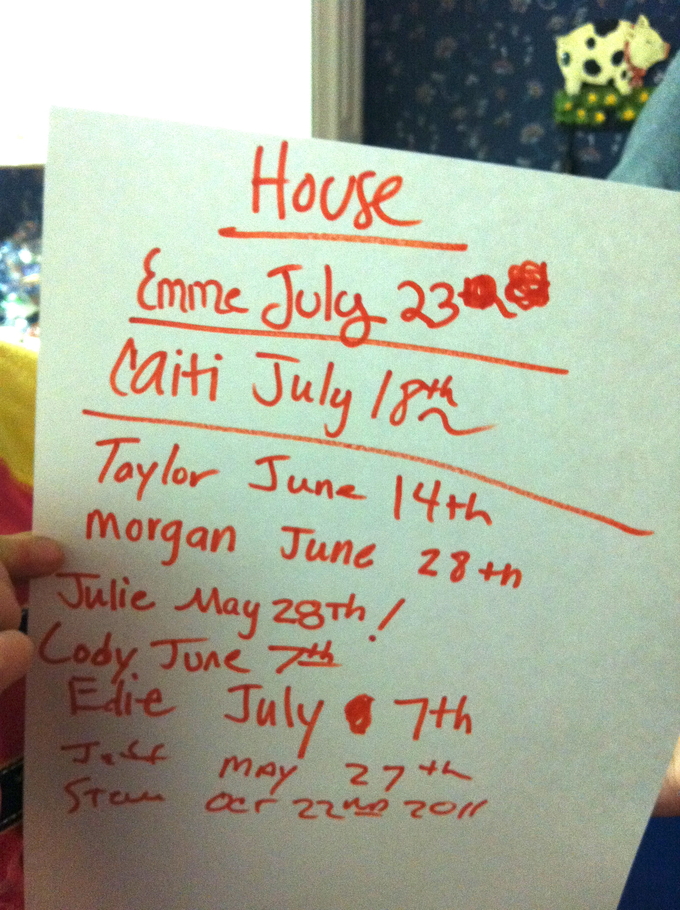 House
Emme July 23
Caiti July 18th
Taylor June 14th
Morgan June 28th
Julie May 28Th!
Cody June 7th
Edie July 7th
Jeff MAY 27th
OCT 22ND 2011